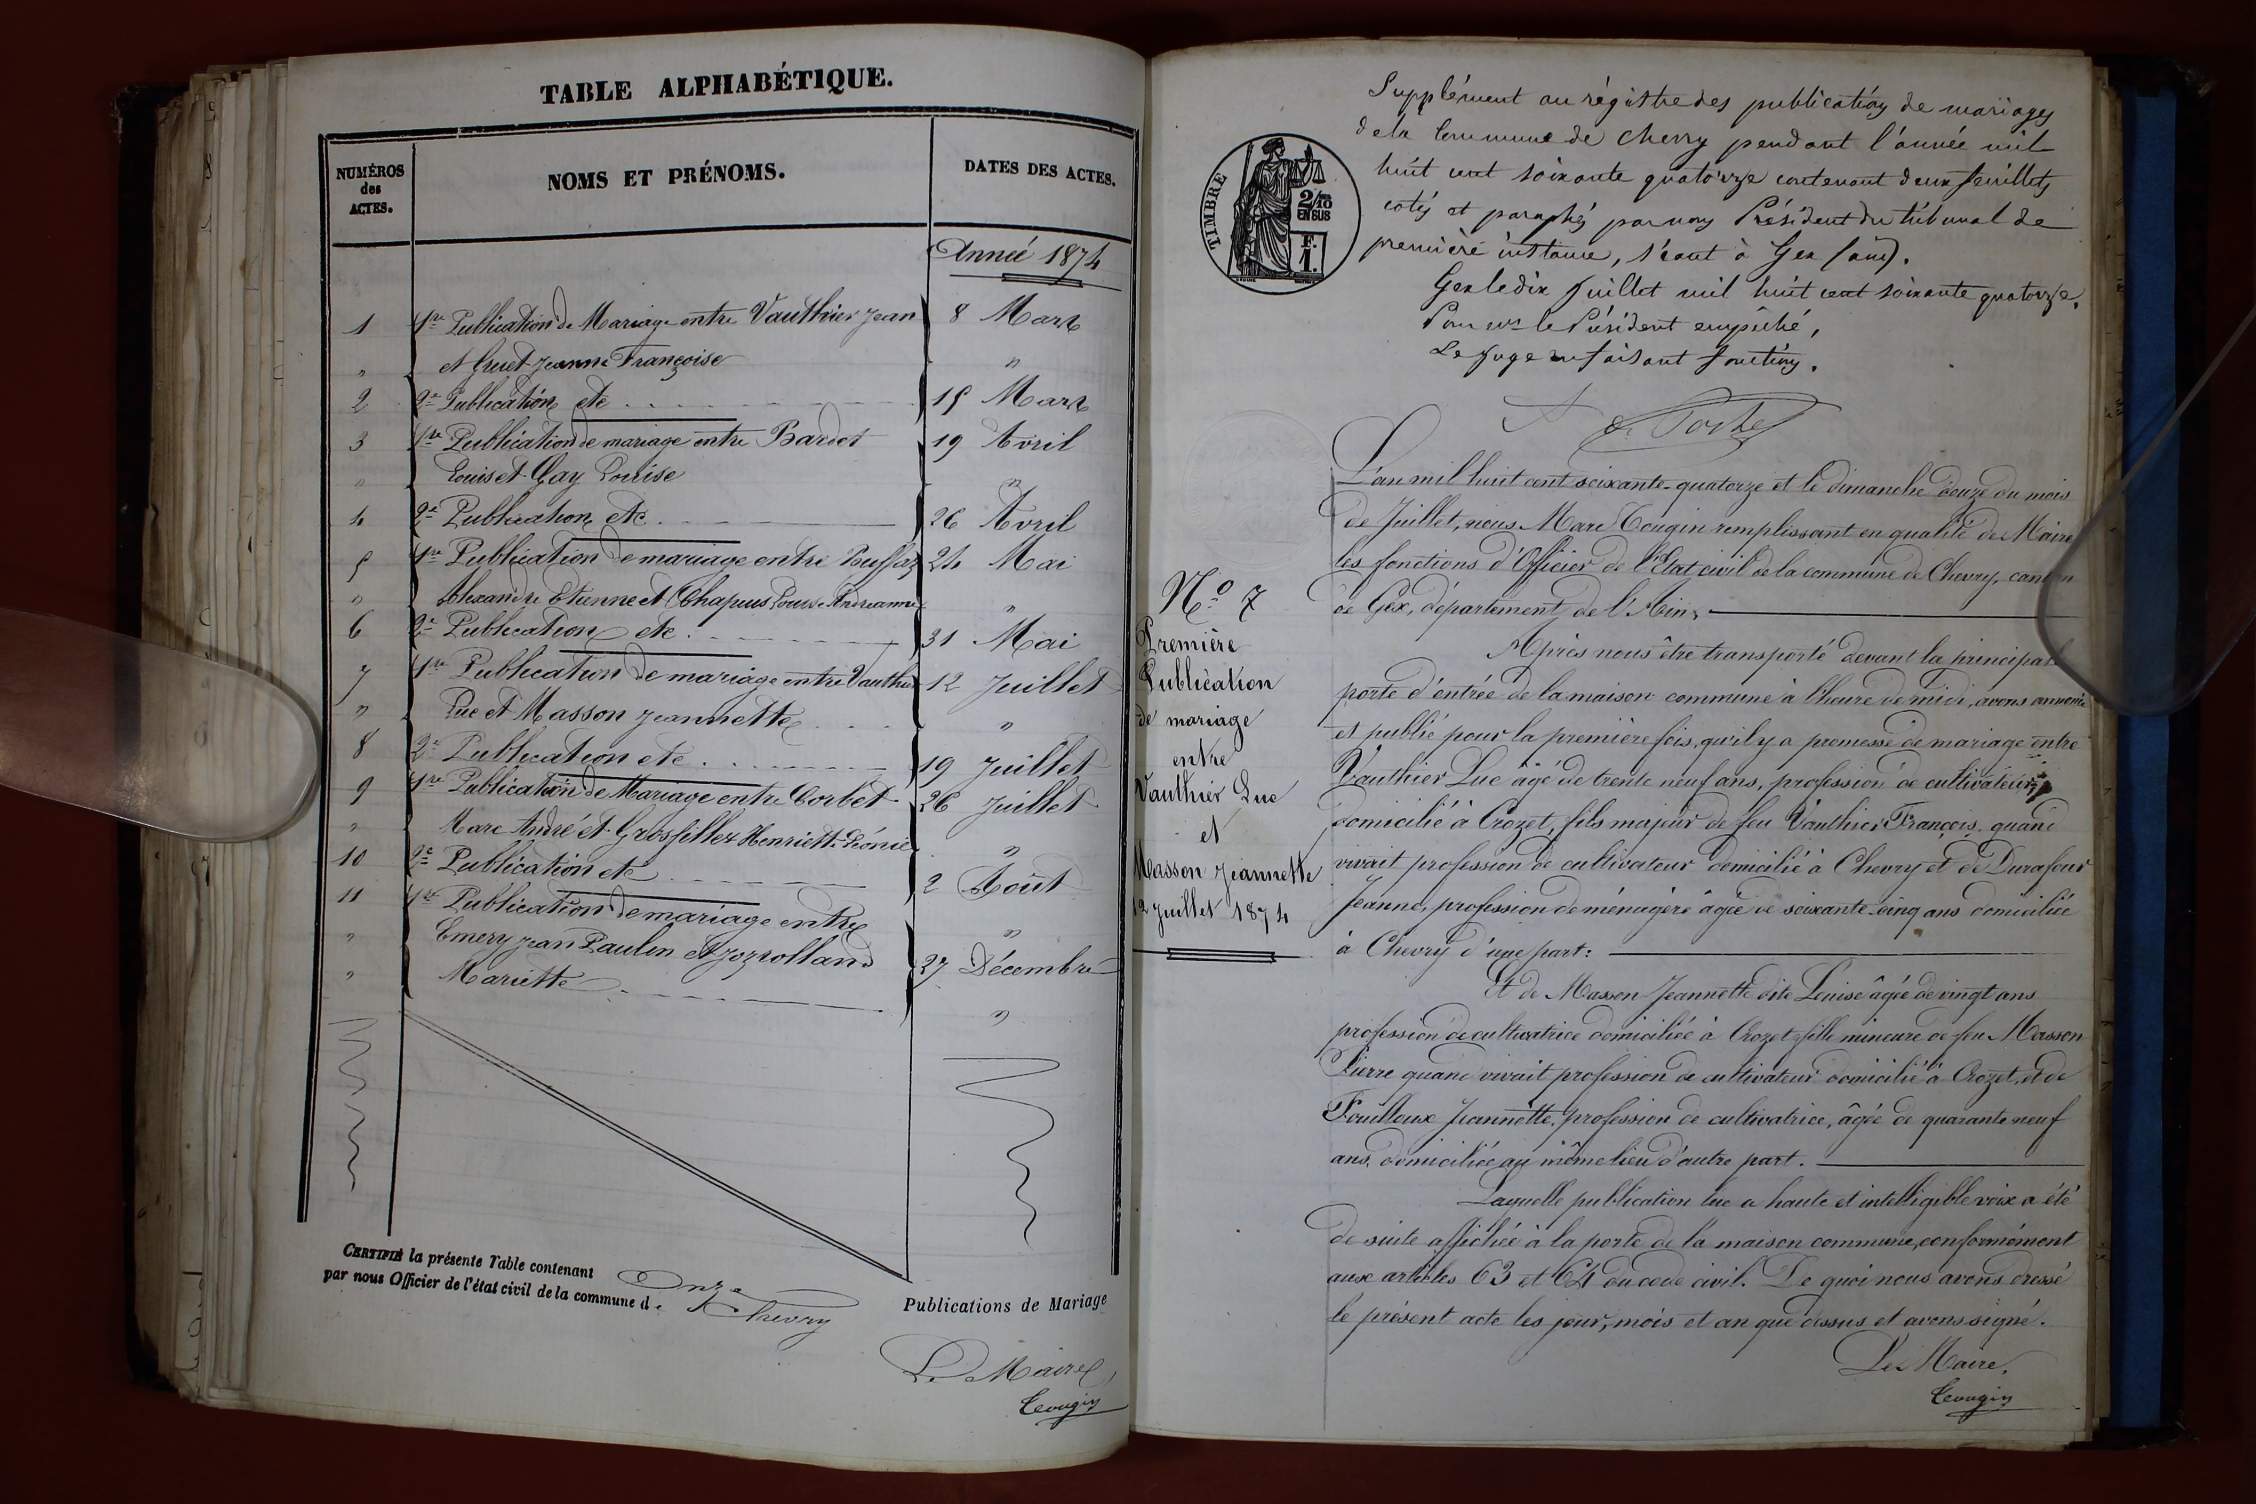 TABLE ALPHABÉTIQUE.
NUMÉROS des ACTES.
NOMS ET PRÉNOMS.
DATES DES ACTES.
Année 1874
1 1re Publication de Mariage entre Vauthier Jean 8 Mars
" et Gruet Jeanne Françoise "
2 2e Publication etc 15 Mars
3 1re Publication de mariage entre Bardet 19 Avril
" Louis et Gay Louise "
4 2e Publication etc 26 Avril
5 1re Publication de mariage entre Buffaz 24 Mai
" Alexandre Etienne et Chapuis Louise Andréanne "
6 2e Publication etc. 31 Mai
7 1re Publication de mariage entre Vauthier 12 Juillet
" Luc et Masson Jeannette "
8 2e Publication etc 19 Juillet
9 1re Publication de Mariage entre Corbet 26 Juillet
" Marc André et Grosfillex Henriette Léonie "
10 2e Publication etc 2 Août
11 1re Publication de mariage entre "
" Emery Jean Paulin et Jozrolland 27 Décembre
" Mariette "
CERTIFIÉ la présente Table contenant Onze Publications de Mariage
par nous Officier de l'état civil de la commune de Chevry
Le Maire,
Tougin
TIMBRE
2/10 EN SUS
F. 1.
Supplément au régistre des publications de mariages
de la Commune de Chevry pendant l'année mil
huit cent soixante quatorze contenant deux feuillets
cotés et paraphés par nous Président du tribunal de
première instance, séant à Gex (ain).
Gex le dix Juillet mil huit cent soixante quatorze.
Pour Mr le Président empêché,
Le Juge en faisant fonctions.
L'an mil huit cent soixante-quatorze et le dimanche douze du mois
de Juillet, nous Marc Tougin remplissant en qualité de Maire
les fonctions d'Officier de l'Etat civil de la commune de Chevry, canton
de Gex, département de l'Ain,
Après nous être transporté devant la principale
porte d'entrée de la maison commune à l'heure de midi, avons annoncé
et publié pour la première fois, qu'il y a promesse de mariage entre
Vauthier Luc âgé de trente neuf ans, profession de cultivateur,
domicilié à Crozet, fils majeur de feu Vauthier François quand
vivait profession de cultivateur domicilié à Chevry et de Durafour
Jeanne, profession de ménagère âgée de soixante-cinq ans domiciliée
à Chevry d'une part:
Et de Masson Jeannette dite Louise âgée de vingt ans
profession de cultivatrice domiciliée à Crozet fille mineure de feu Masson
Pierre quand vivait profession de cultivateur domicilié à Crozet, et de
Fouilloux Jeannette, profession de cultivatrice, âgée de quarante neuf
ans, domiciliée au même lieu d'autre part.
Laquelle publication lue a haute et intelligible voix a été
de suite affichée à la porte de la maison commune, conformément
aux articles 63 et 64 du code civil. De quoi nous avons dressé
le présent acte les jour, mois et an que dessus et avons signé.
Le Maire,
Tougin
No 7
Première
Publication
de mariage
entre
Vauthier Luc
et
Masson Jeannette
12 Juillet 1874